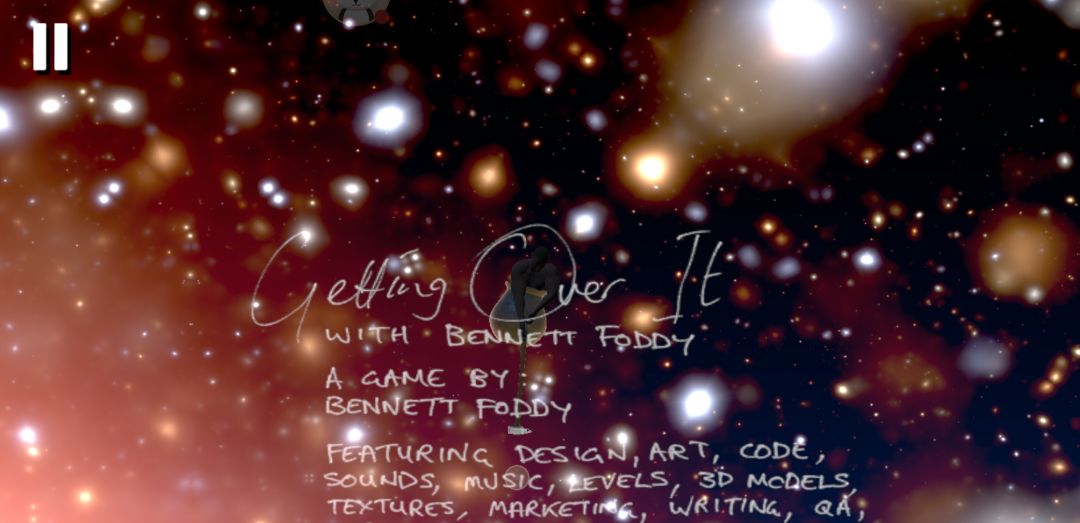 Getting Over It
WITH BENNETT FODDY
A GAME BY
BENNETT FODDY
FEATURING DESIGN, ART, CODE,
SOUNDS, MUSIC, LEVELS, 3D MODELS,
TEXTURES, MARKETING, WRITING, QA,